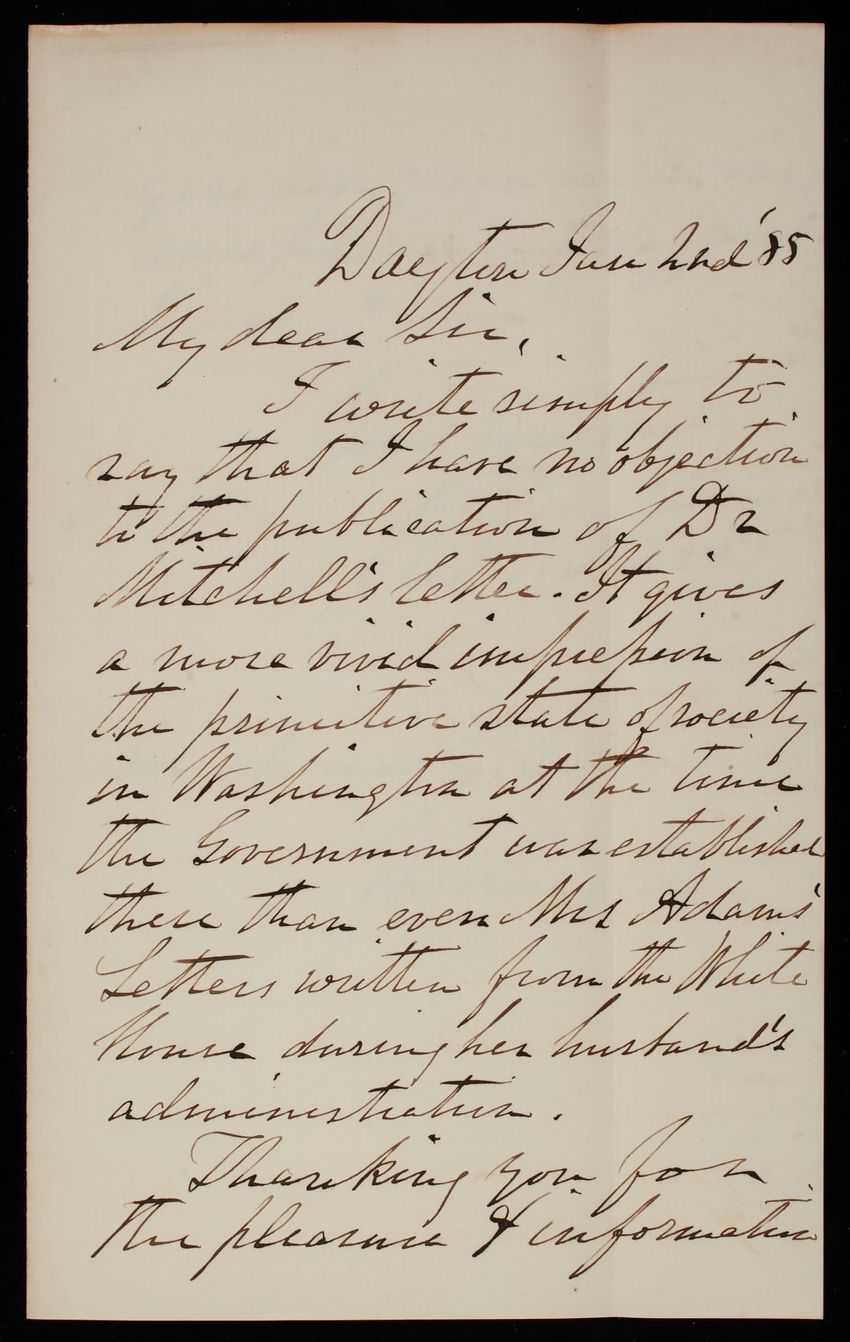 Dayton Jan 2nd '85
My dear Sir,
I write simply to
say that I have no objection
to the publication of Dr
Mitchell's letter. It gives
a more vivid impression of
the primitive state of society
in Washington at the time
the Government was established
there than even Mrs Adams'
Letters written from the White
House during her husband's
administration.
Thanking you for
the pleasure & information